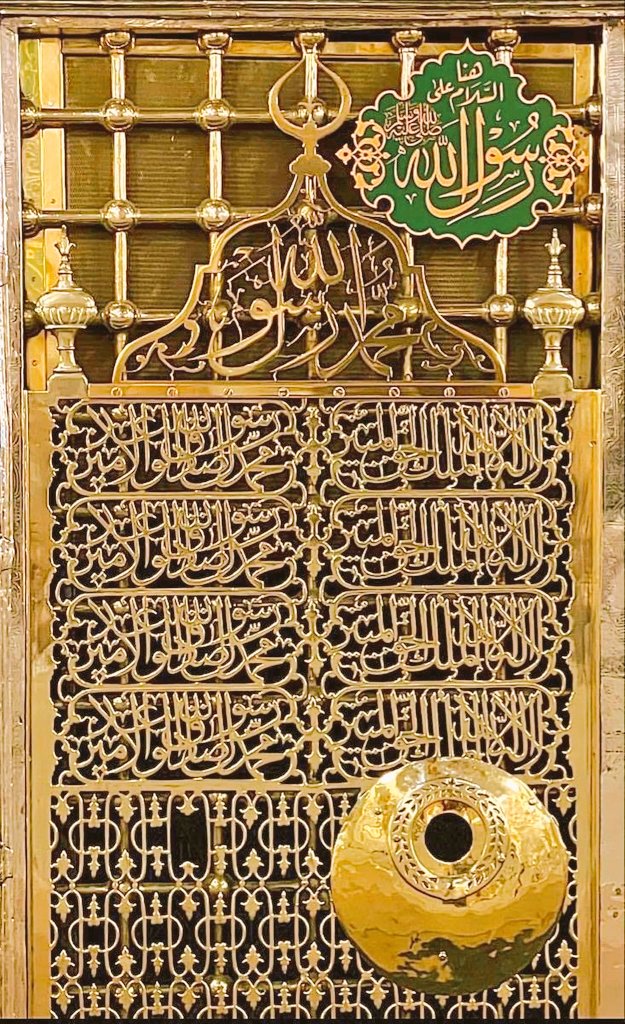 هنا
السلام على
رسول الله
صلى الله عليه وسلم
محمد رسول الله
لا إله إلا الله الملك الحق المبين محمد رسول الله الصادق الوعد الأمين
لا إله إلا الله الملك الحق المبين محمد رسول الله الصادق الوعد الأمين
لا إله إلا الله الملك الحق المبين محمد رسول الله الصادق الوعد الأمين
لا إله إلا الله الملك الحق المبين محمد رسول الله الصادق الوعد الأمين